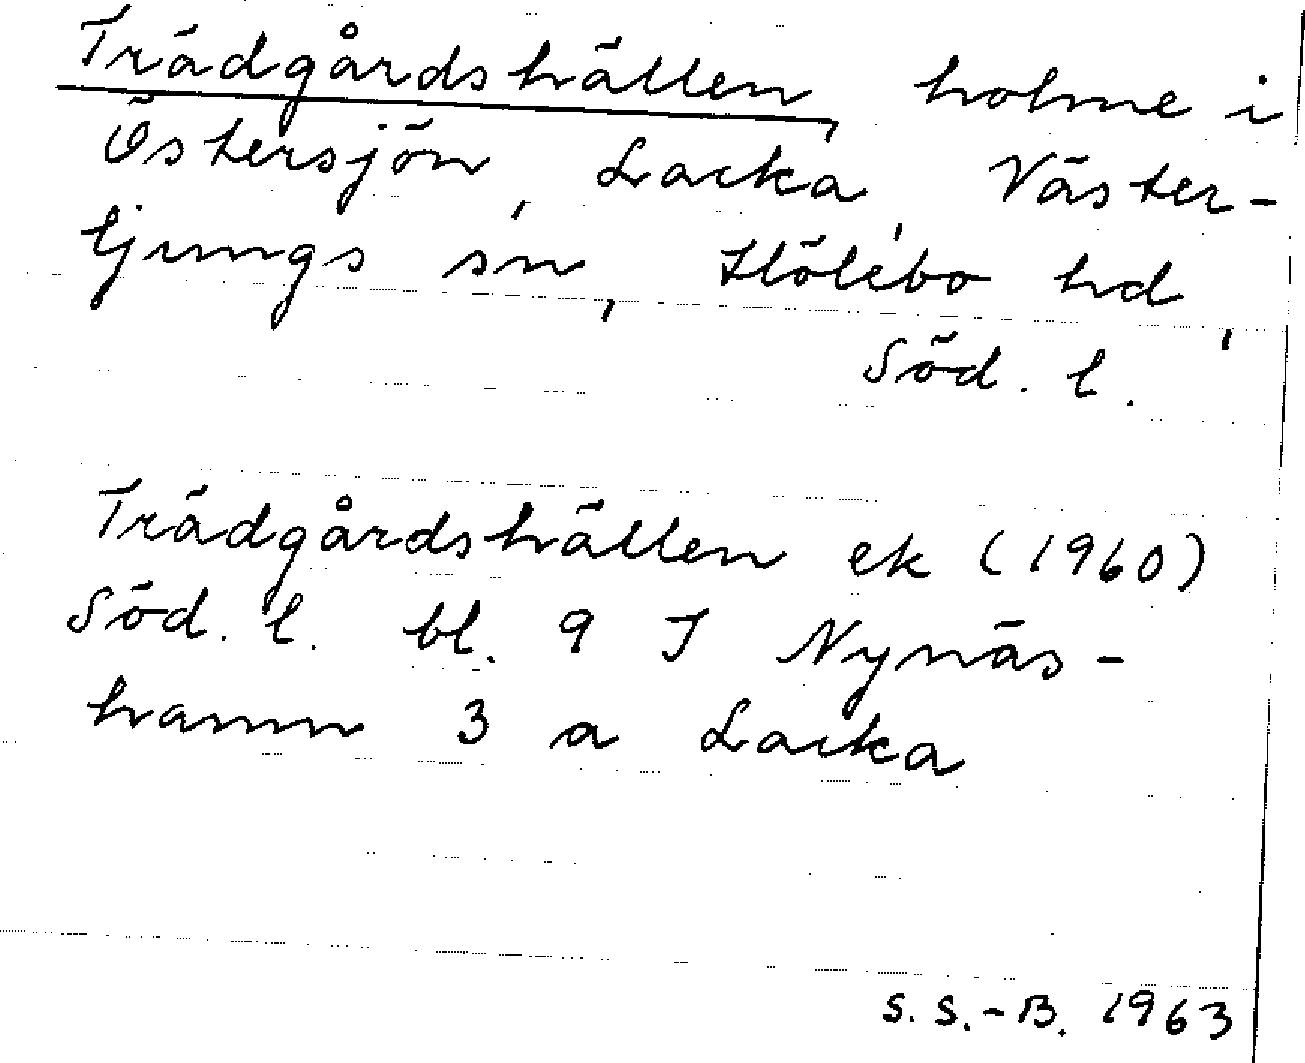 Trädgårdshällen, holme i
Östersjön, Lacka, Väster-
ljungs sn, Hölebo hd,
Söd. l.
Trädgårdshällen ek (1960)
Söd. l. bl. 9 I Nynäs-
hamn 3 a Lacka
S. S.-B. 1963